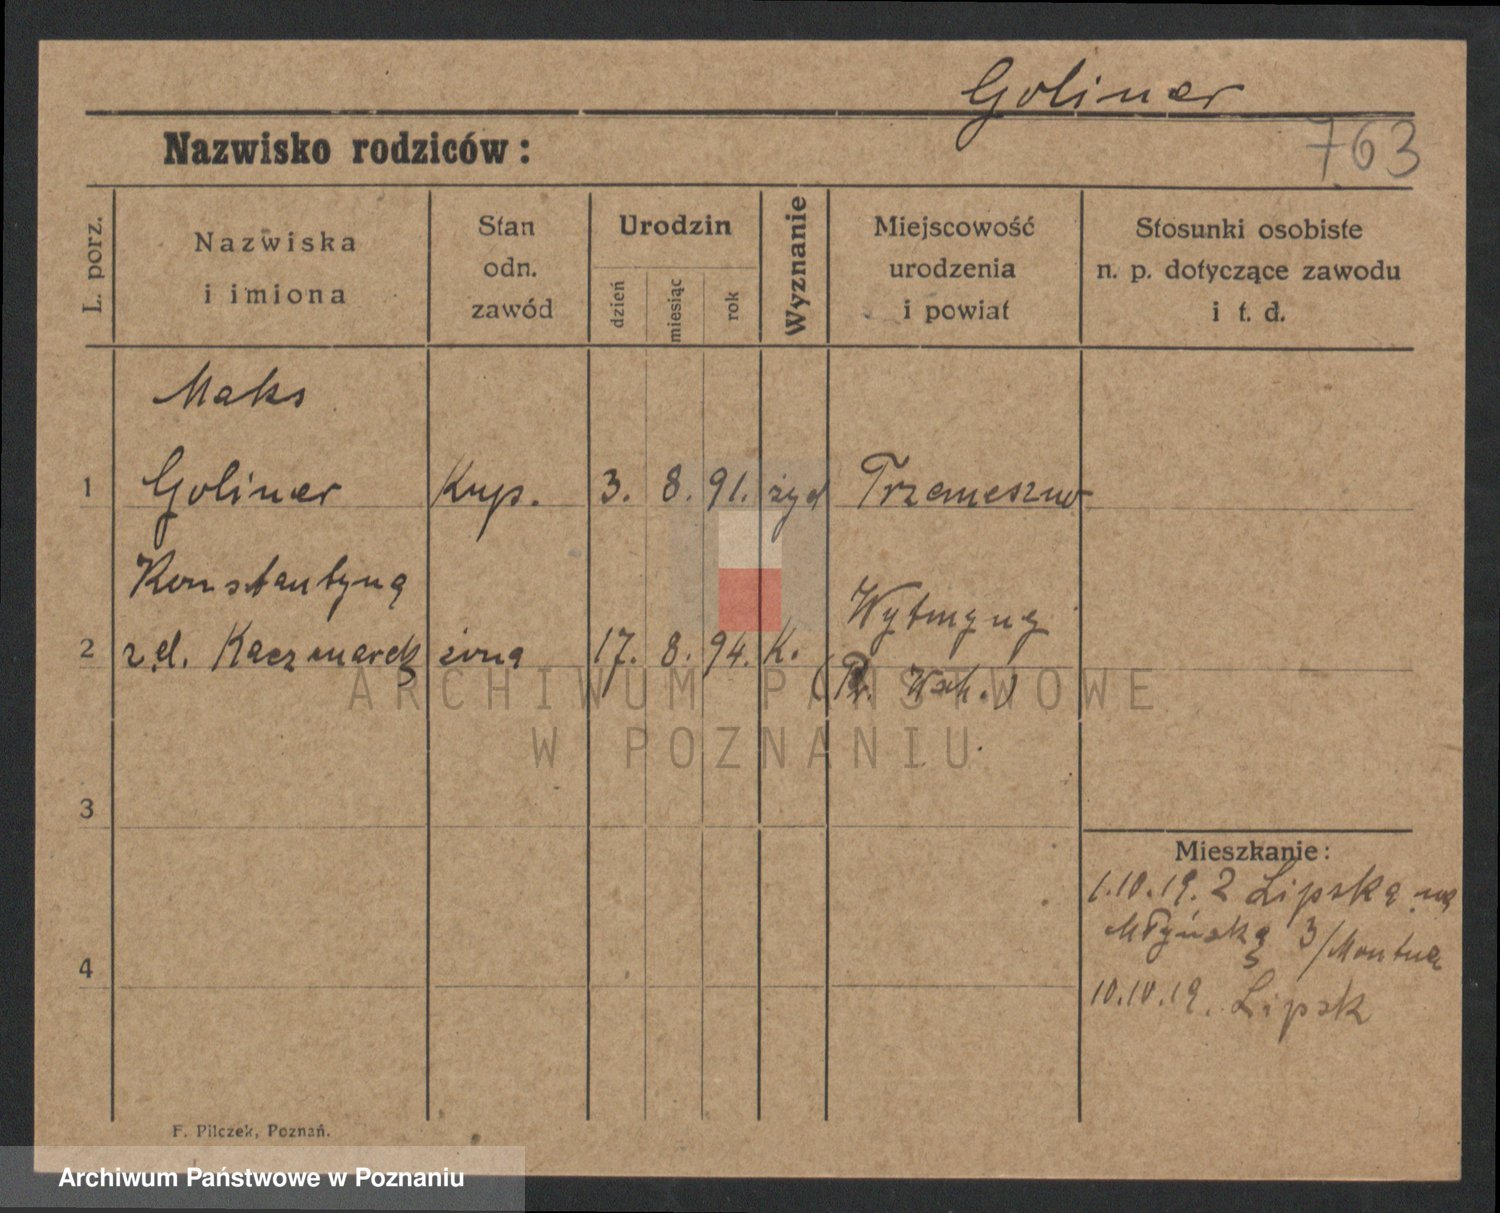 Goliner
763
Nazwisko rodziców:
L. porz.
Nazwiska
i imiona
Stan
odn.
zawód
Urodzin
dzień
miesiąc
rok
Wyznanie
Miejscowość
urodzenia
i powiat
Stosunki osobiste
n. p. dotyczące zawodu
i t. d.
Maks
1 Goliner Kup. 3. 8. 91. żyd Trzemeszno
Konstantyna
2 z d. Kaczmarek żona 17. 8. 94. K.
3
4
Mieszkanie:
1.10.19. z Lipska na
Młyńską 3/
10.10.19. Lipsk
F. Pilczek, Poznań.
ARCHIWUM PAŃSTWOWE
W POZNANIU
Archiwum Państwowe w Poznaniu